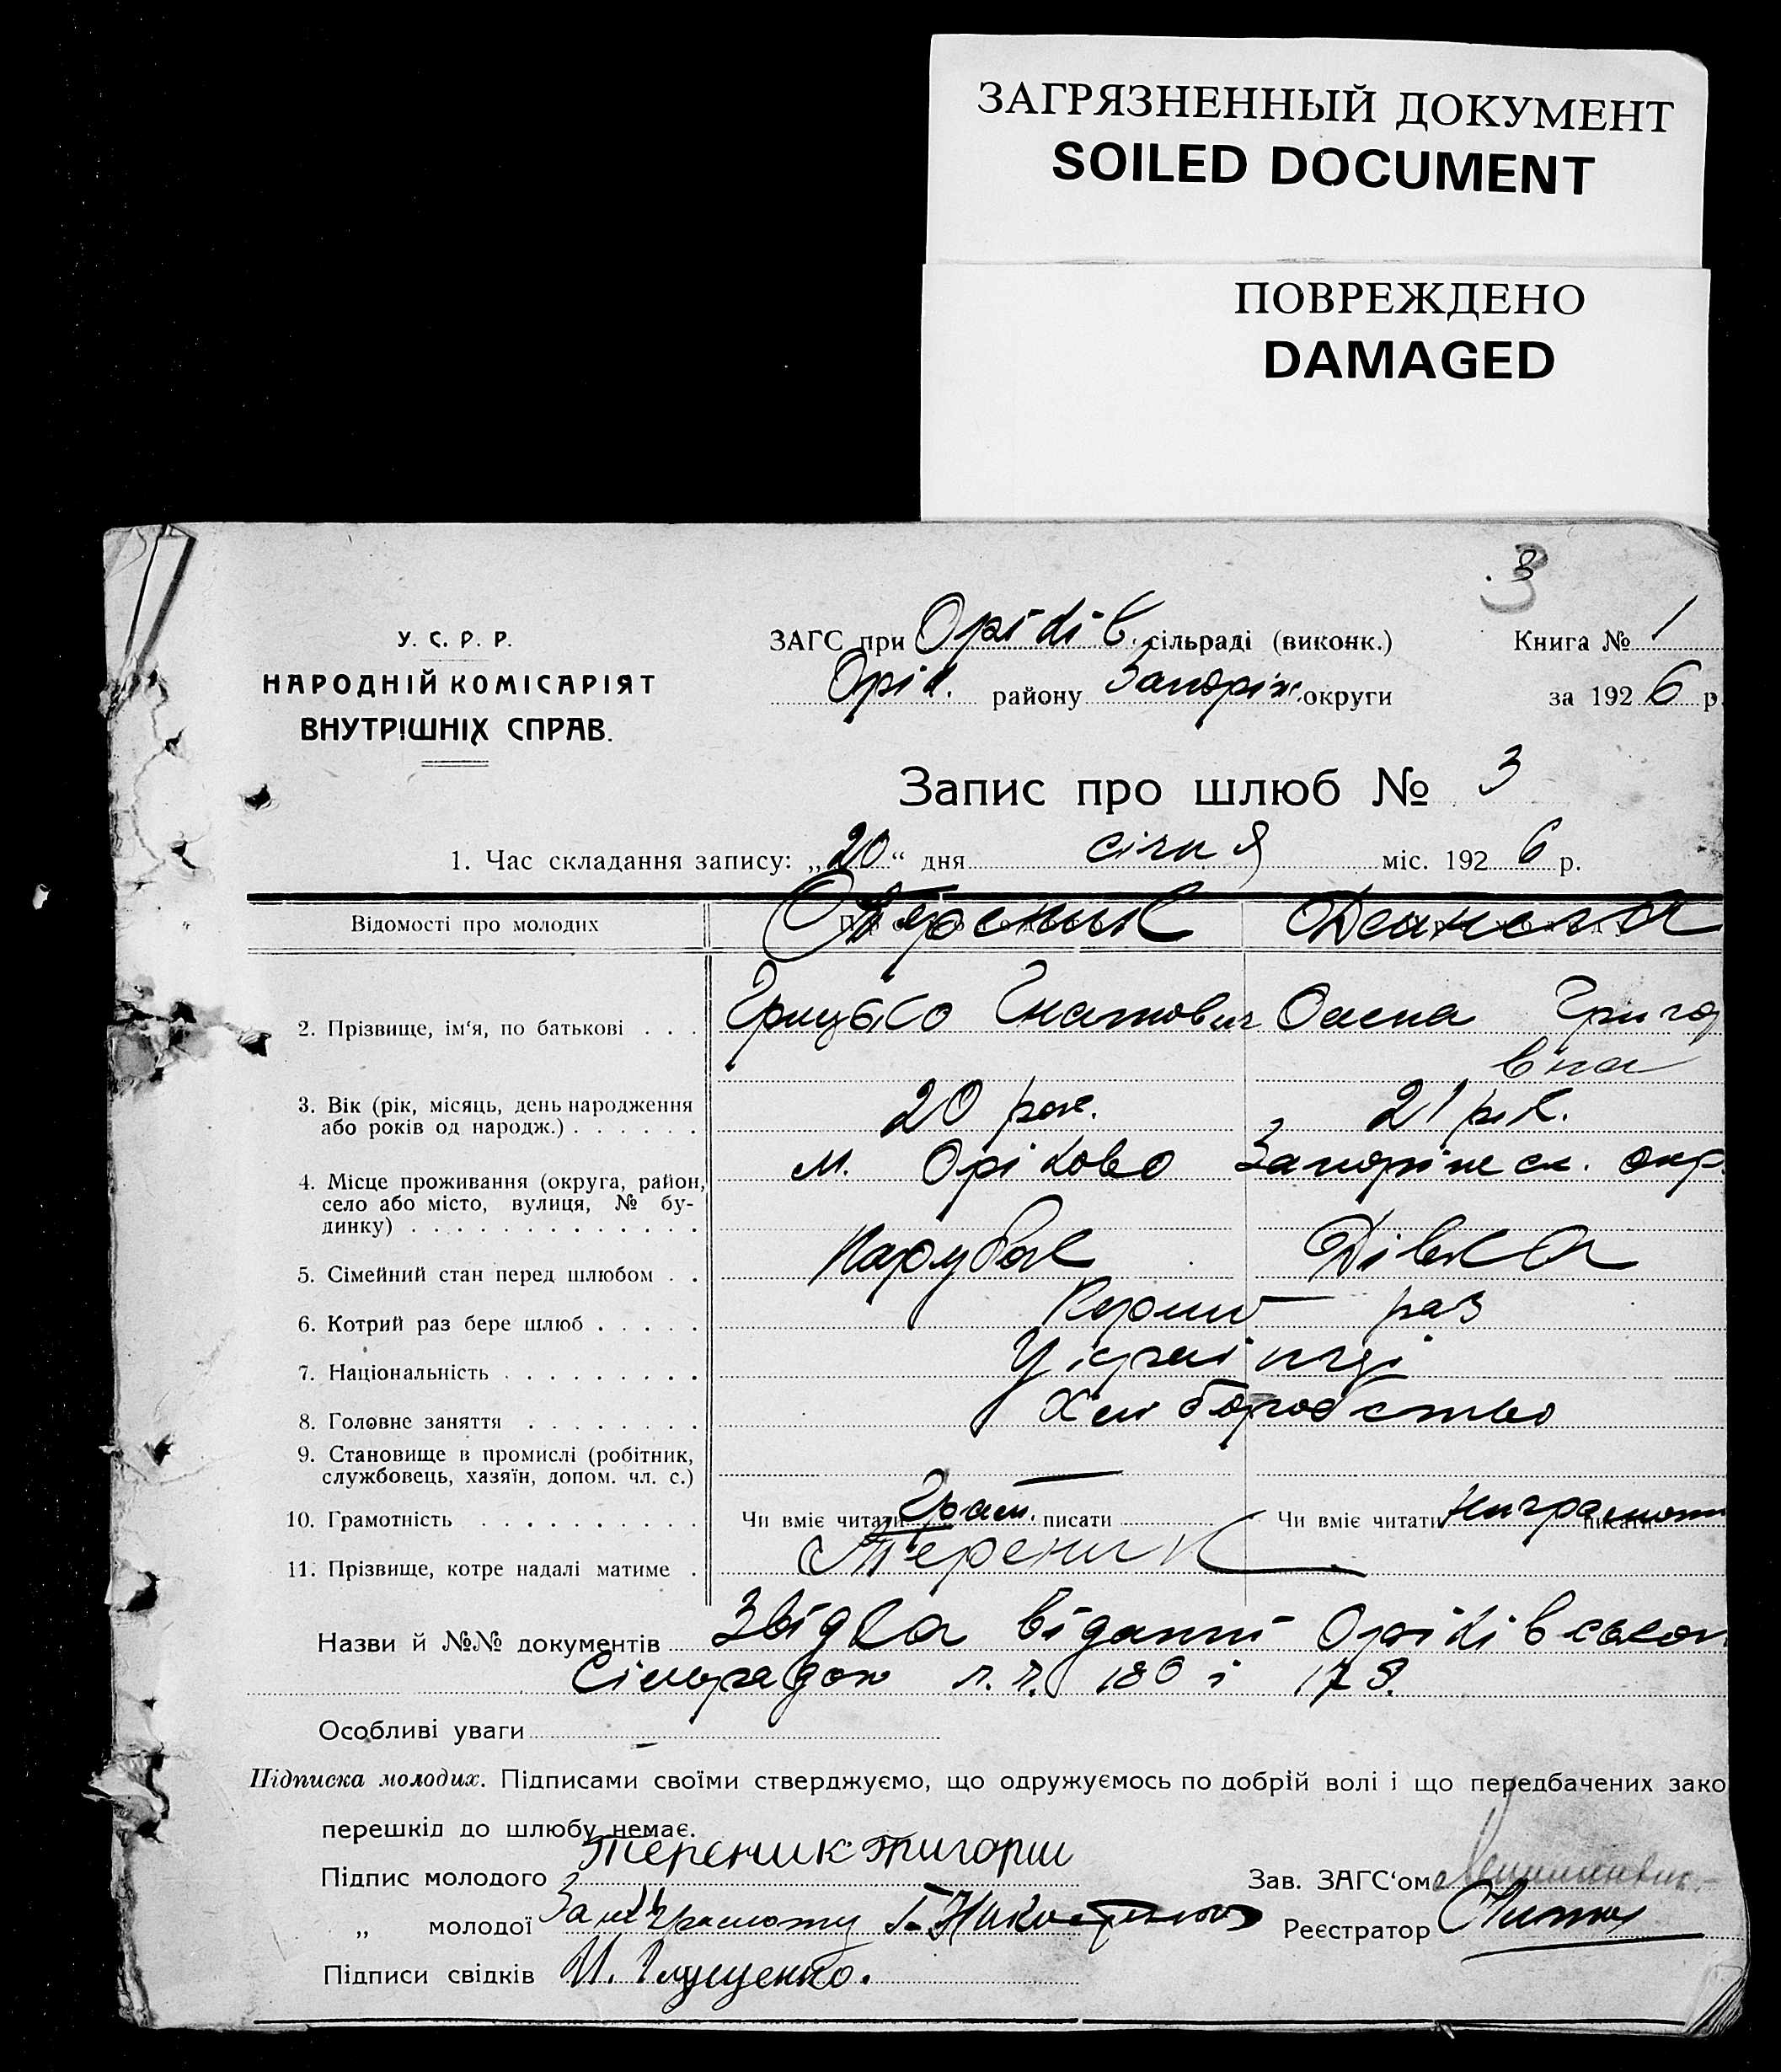 ЗАГРЯЗНЕННЫЙ ДОКУМЕНТ
SOILED DOCUMENT
ПОВРЕЖДЕНО
DAMAGED
3
У. С. Р. Р.
НАРОДНІЙ КОМІСАРІЯТ
ВНУТРІШНІХ СПРАВ.
ЗАГС при Оріків. сільраді (виконк.) Книга № 1
Орік. району Запоріж. округи за 1926 р.
Запис про шлюб № 3
1. Час складання запису: „20“ дня січня міс. 1926 р.
Відомості про молодих Тереник
2. Прізвище, ім‘я, по батькові . . . Грицько Гнатович Григор
вна
3. Вік (рік, місяць, день народження 20 рок. 21 рік.
або років од народж.) . . . . . .
4. Місце проживання (округа, район, м. Оріково Запоріжск. окр.
село або місто, вулиця, № бу-
динку) . . . . . . . . . . . . .
5. Сімейний стан перед шлюбом . . Парубок Дівка
6. Котрий раз бере шлюб . . . . . Перший раз
7. Національність . . . . . . . . . Українці
8. Головне заняття . . . . . . . . Хліборобство
9. Становище в промислі (робітник,
службовець, хазяїн, допом. чл. с.) —
10. Грамотність . . . . . . . . . . Чи вміє читати Грам. писати Чи вміє читати Неграмотн писати
11. Прізвище, котре надалі матиме . Тереник
Назви й №№ документів Звідка відатні Оріківською
Сільрадою н.н. 180 і 178.
Особливі уваги —
Підписка молодих. Підписами своїми стверджуємо, що одружуємось по добрій волі і що передбачених зако
перешкід до шлюбу немає.
Підпис молодого Тереник Григорий Зав. ЗАГС‘ом
„ молодої За неграмотну Г. Реєстратор
Підписи свідків И. Глущенко.